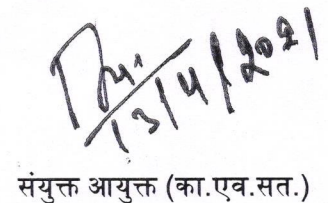 13/4/2021
संयुक्त आयुक्त (का.एव.सत.)